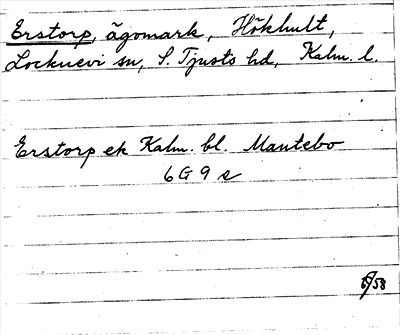 Erstorp, ägomark, Hökhult,
Locknevi sn, S. Tjusts hd, Kalm. l.
Erstorp ek Kalm. bl. Mantebo
6 G 9 e
58